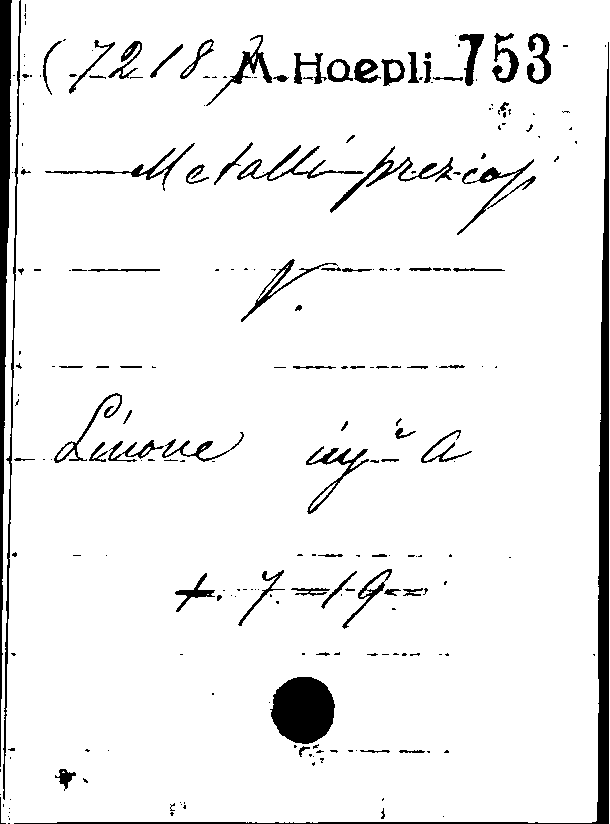 (7218) M. Hoepli 753
Metalli preziosi
V.
Linone ing.r A
+. 7 = 19 =